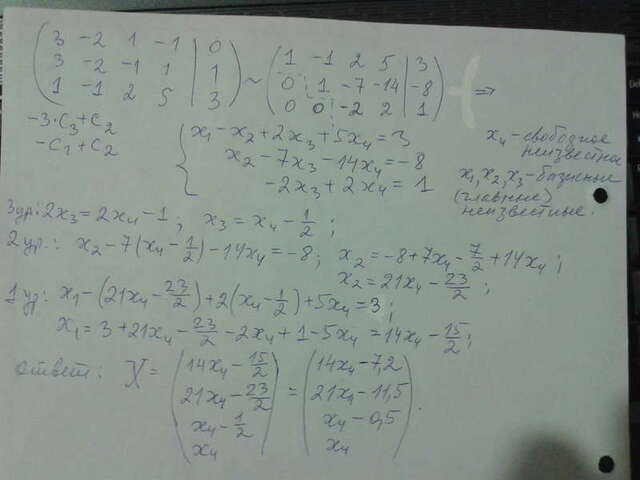 ( 3 -2 1 -1 | 0 ) ~ ( 1 -1 2 5 | 3 )
( 3 -2 -1 1 | 1 ) ~ ( 0 1 -7 -14 | -8 ) ⇒
( 1 -1 2 5 | 3 ) ~ ( 0 0 -2 2 | 1 )
-3·C₃+C₂
-C₁+C₂
{ x₁ - x₂ + 2x₃ + 5x₄ = 3
x₂ - 7x₃ - 14x₄ = -8
-2x₃ + 2x₄ = 1
x₄ - свободное
неизвестн
x₁, x₂, x₃ - базисные
(главные)
неизвестные.
3 ур: 2x₃ = 2x₄ - 1; x₃ = x₄ - 1/2;
2 ур.: x₂ - 7(x₄ - 1/2) - 14x₄ = -8; x₂ = -8 + 7x₄ - 7/2 + 14x₄;
x₂ = 21x₄ - 23/2;
1 ур: x₁ - (21x₄ - 23/2) + 2(x₄ - 1/2) + 5x₄ = 3;
x₁ = 3 + 21x₄ - 23/2 - 2x₄ + 1 - 5x₄ = 14x₄ - 15/2;
ответ: X = ( 14x₄ - 15/2 ) = ( 14x₄ - 7,2 )
( 21x₄ - 23/2 ) = ( 21x₄ - 11,5 )
( x₄ - 1/2 ) ( x₄ - 0,5 ) .
( x₄ ) ( x₄ )